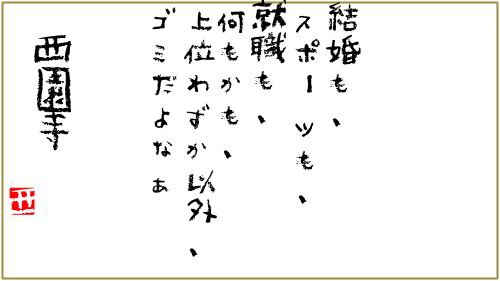 結婚も、
スポーツも、
就職も、
何もかも、
上位わずか以外、
ゴミだよなぁ
西園寺